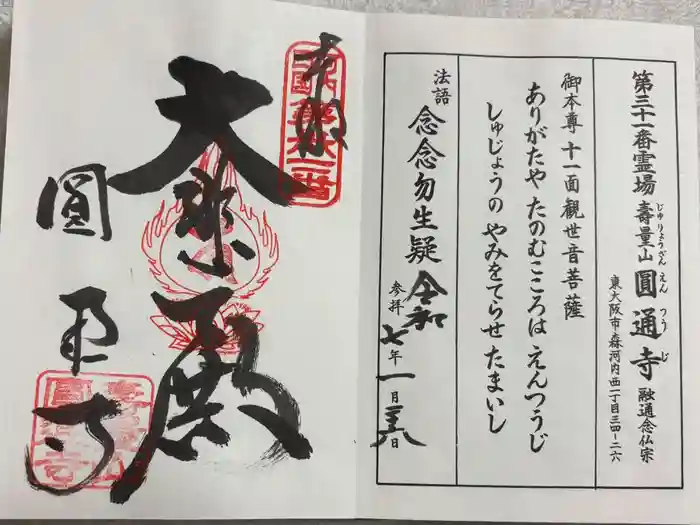 第三十一番霊場 壽量山 圓通寺 融通念仏宗
じゅりょうざん えんつうじ
東大阪市森河内西一丁目三四-二六
御本尊 十一面観世音菩薩
ありがたや たのむこころは えんつうじ
しゅじょうの やみをてらせ たまいし
法語 念念勿生疑
参拝 令和七年一月二六日
奉拝
大悲殿
圓通寺